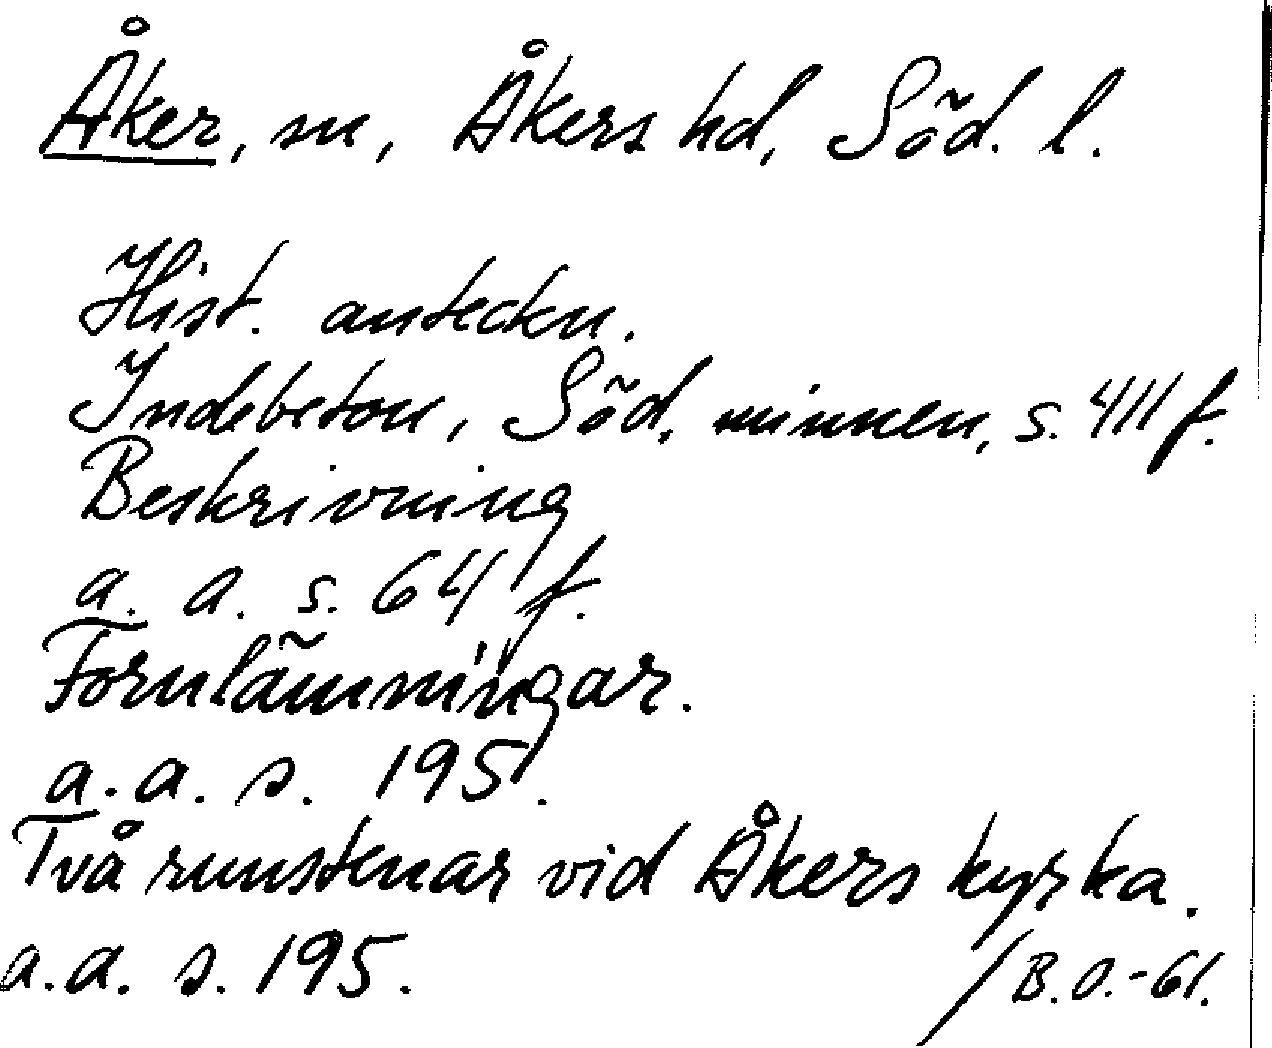 Åker, sn, Åkers hd, Söd. l.
Hist. anteckn.
Indebetou, Söd. minnen, s. 411 f.
Beskrivning
a. a. s. 64 f.
Fornlämningar.
a. a. s. 195.
Två runstenar vid Åkers kyrka.
a. a. s. 195.
/B. O. -61.